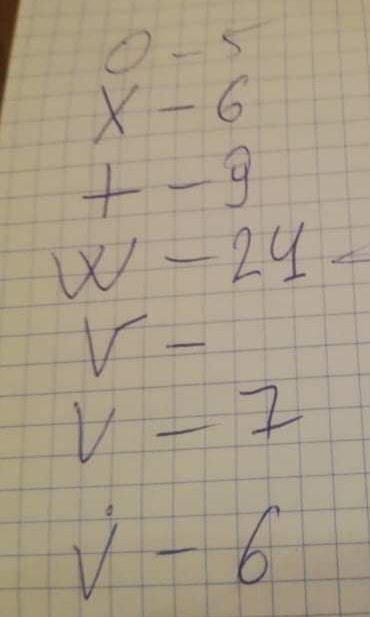 O - 5
X - 6
+ - 9
W - 24
V -
V - 7
V̇ - 6